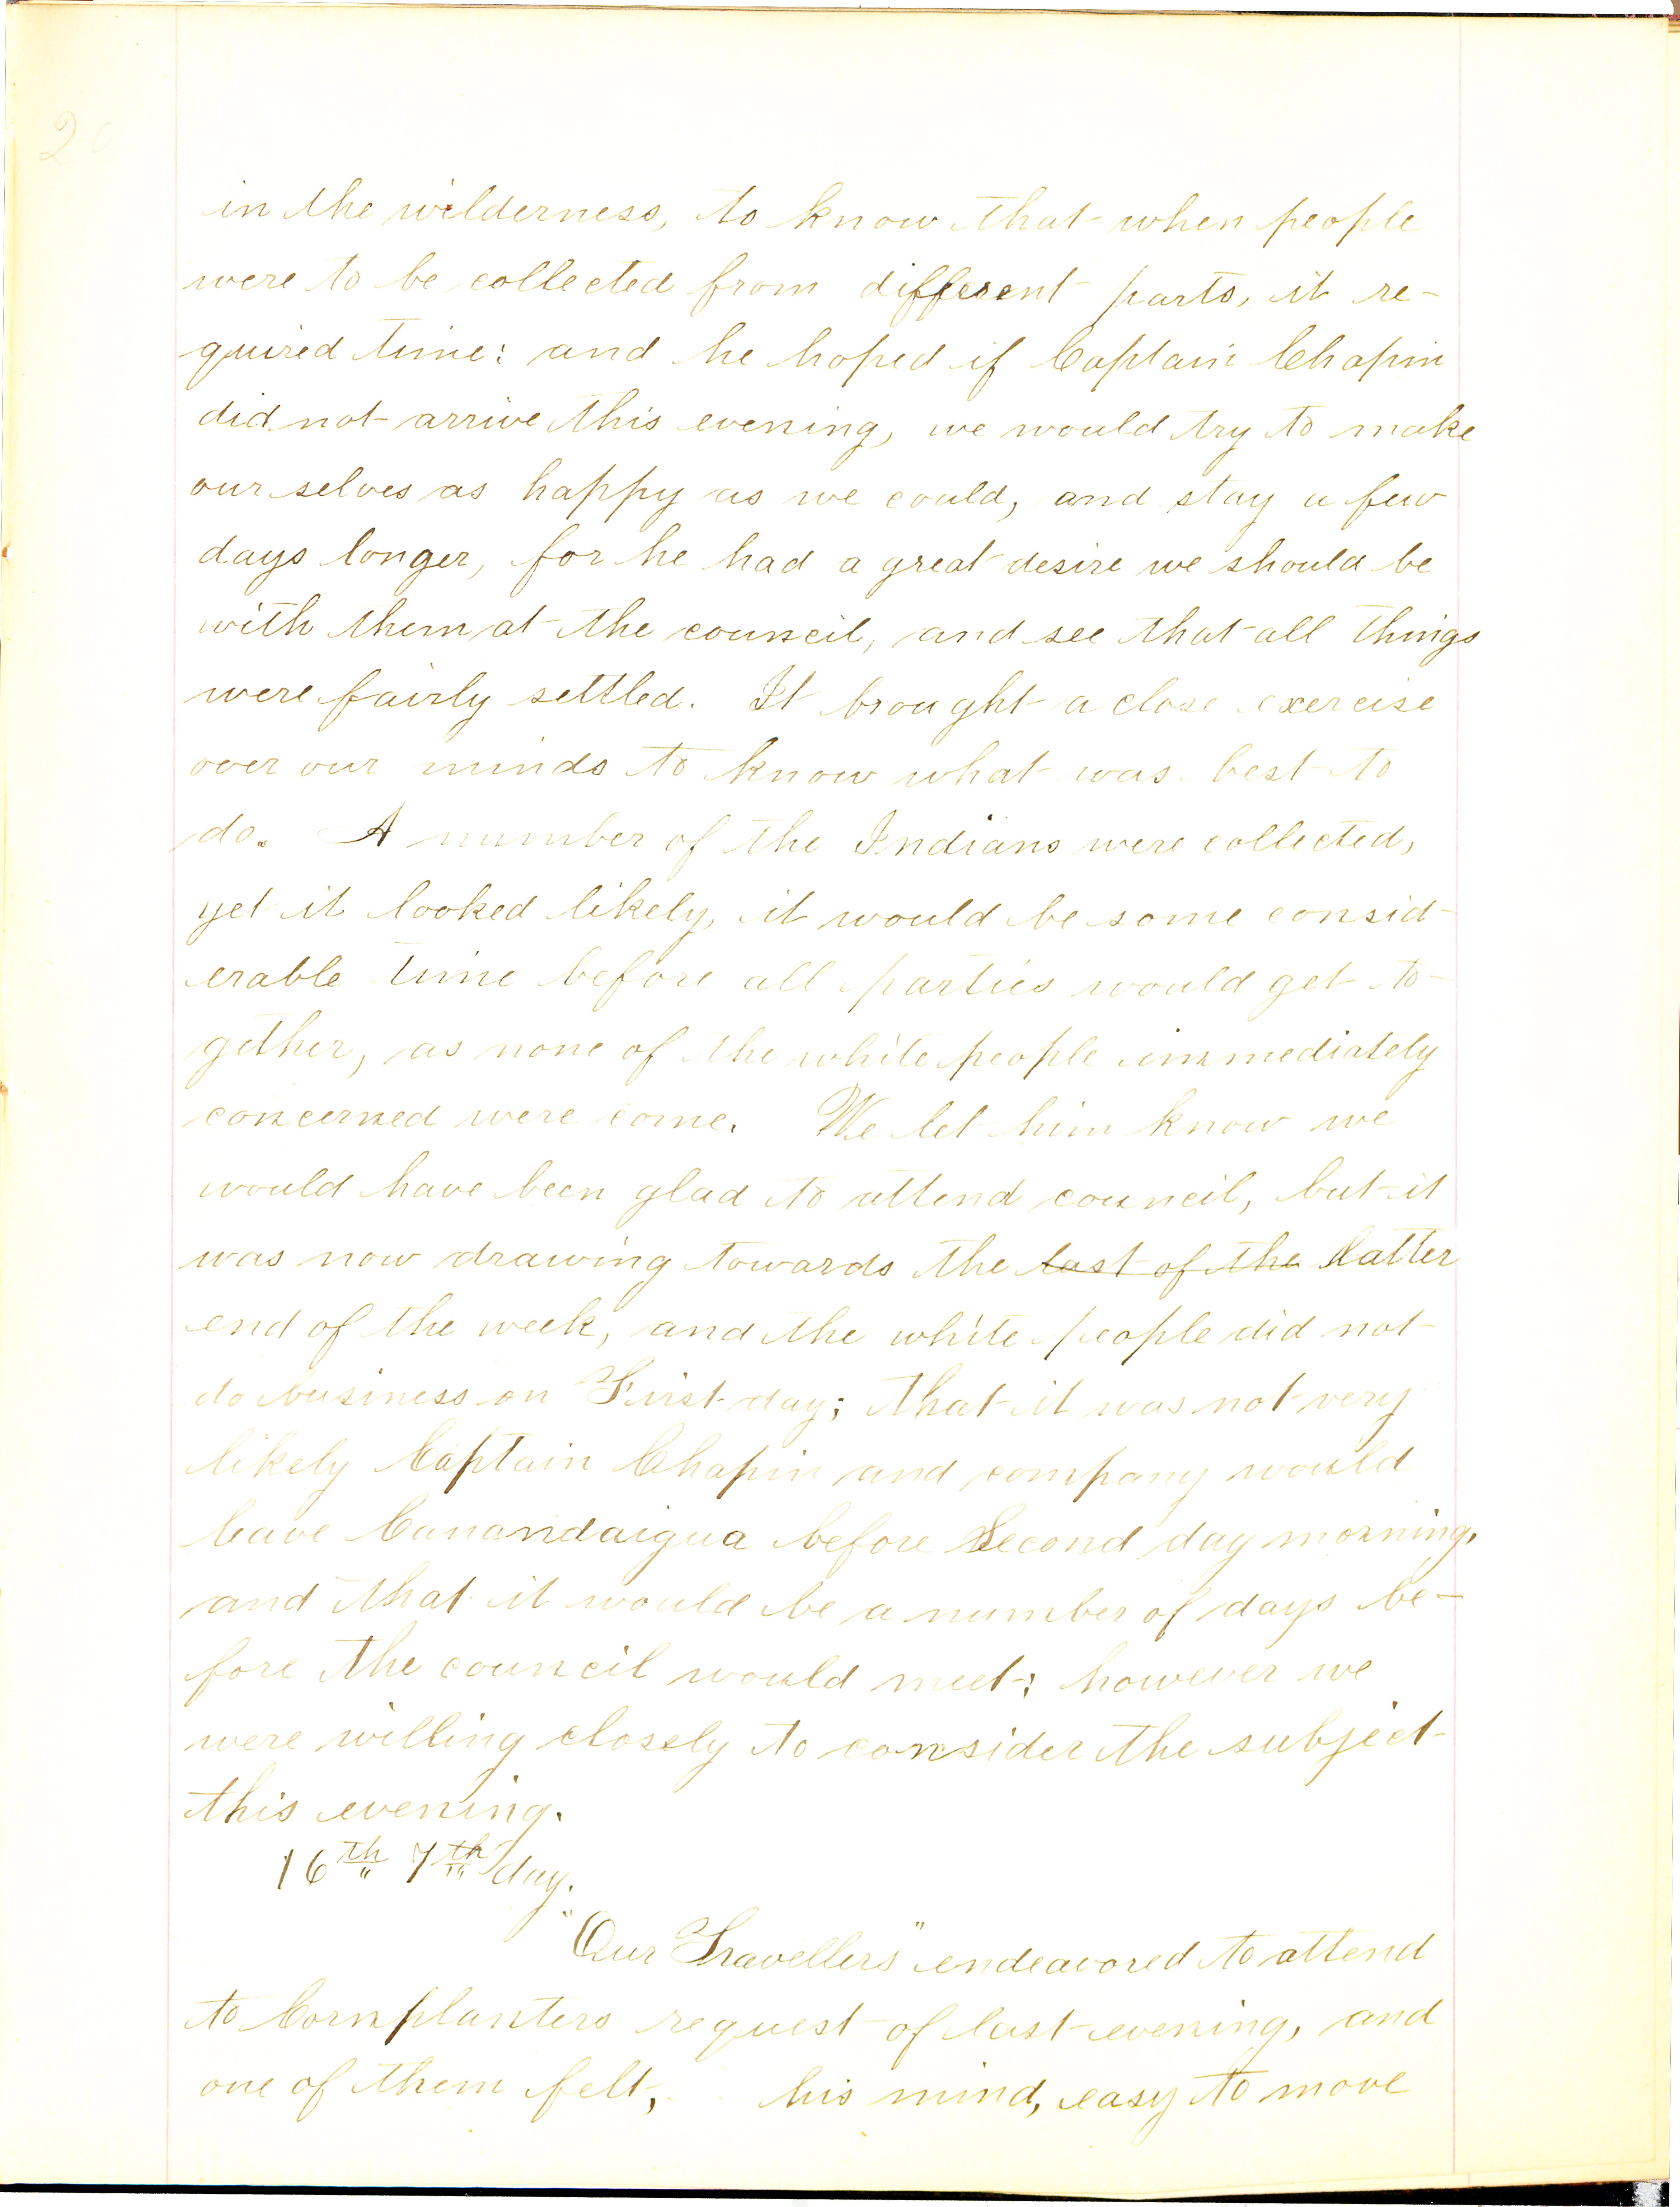 in the wilderness, to know that when people
were to be collected from different parts, it re-
quired time: and he hoped if Captain Chapin
did not arrive this evening, we would try to make
our selves as happy as we could, and stay a few
days longer, for he had a great desire we should be
with them at the council, and see that all things
were fairly settled. It brought a close exercise
over our minds to know what was best to
do. A number of the Indians were collected,
yet it looked likely, it would be some consid-
erable time before all parties would get to-
gether, as none of the white people immediately
concerned were come. We let him know we
would have been glad to attend council, but it
was now drawing towards the last of the latter
end of the week, and the white people did not
do business on First day; that it was not very
likely Captain Chapin and company would
leave Canandaigua before Second day morning,
and that it would be a number of days be-
fore the council would meet; however we
were willing closely to consider the subject
this evening.
16th 7th day.
"Our Travellers" endeavored to attend
to Cornplanters request of last evening, and
one of them felt, his mind, easy to move